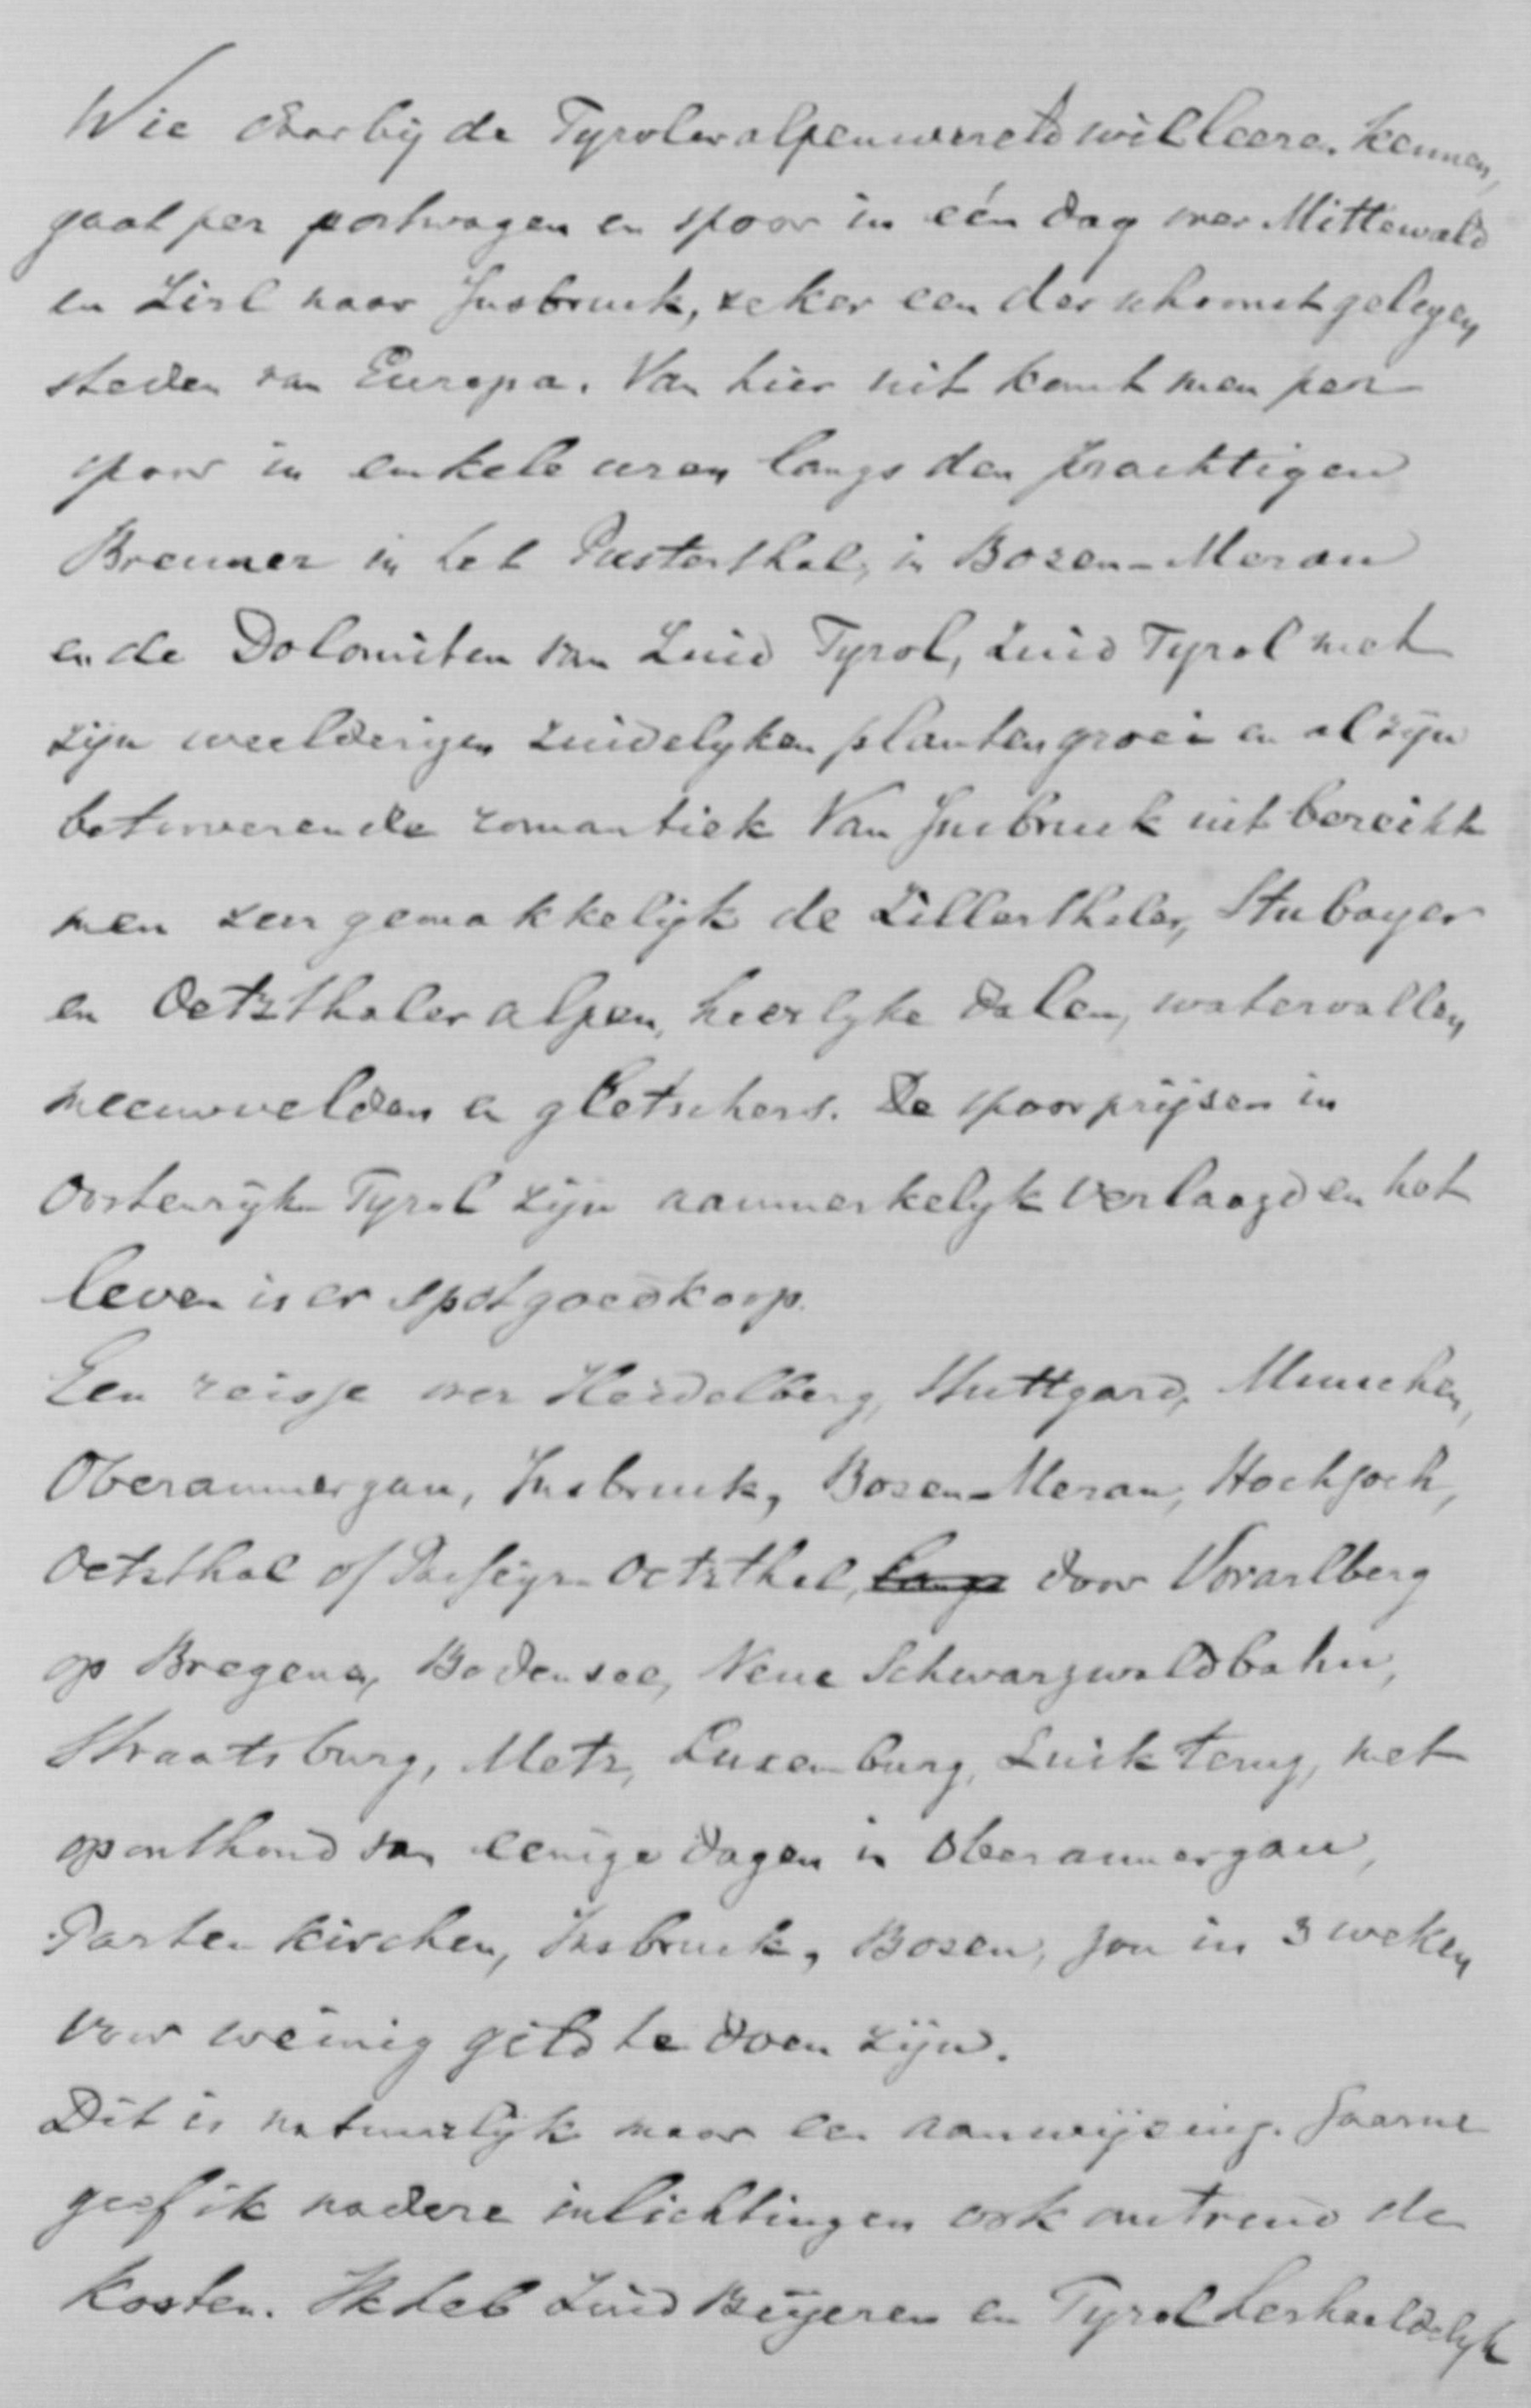 Wie daarbij de Tyroler alpenwereld wil leeren kennen,
gaat per postwagen en spoor in één dag over Mittewald
en Zirl naar Insbruck, zeker een der schoonst gelegen
steden van Europa. Van hier uit komt men per
spoor in enkele uren langs den prachtigen
Brenner in het Pusterthal, in Bozen-Meran
en de Dolomiten van Zuid Tyrol, Zuid Tyrol met
zijn weelderigen zuidelyken plantengroei en al zijn
betooverende romantiek Van Insbruck uit bereikt
men zeer gemakkelijk de Zillerthaler, Stubayer
en Oetzthaler alpen, heerlyke dalen, watervallen,
sneeuwvelden en gletschers. De spoorprijsen in
Oostenrijk-Tyrol zijn aanmerkelyk verlaagd en het
leven is er spotgoedkoop.
Een reisje over Heidelberg, Stuttgard, Munchen,
Oberammergau, Insbruck, Bozen-Meran, Hochjoch,
Oetzthal of Passeyr-Oetzthal, langs door Vorarlberg
op Bregenz, Bodensee, Neue Schwarzwaldbahn,
Straatsburg, Metz, Luxemburg, Luik terug, met
oponthoud van eenige dagen in Oberammergau,
Partenkirchen, Insbruck, Bozen, zou in 3 weken
voor weinig geld te doen zijn.
Dit is natuurlijk maar een aanwijzing. Gaarne
geef ik nadere inlichtingen ook omtrend de
kosten. Ik heb Zuid Beijeren en Tyrol herhaaldelyk